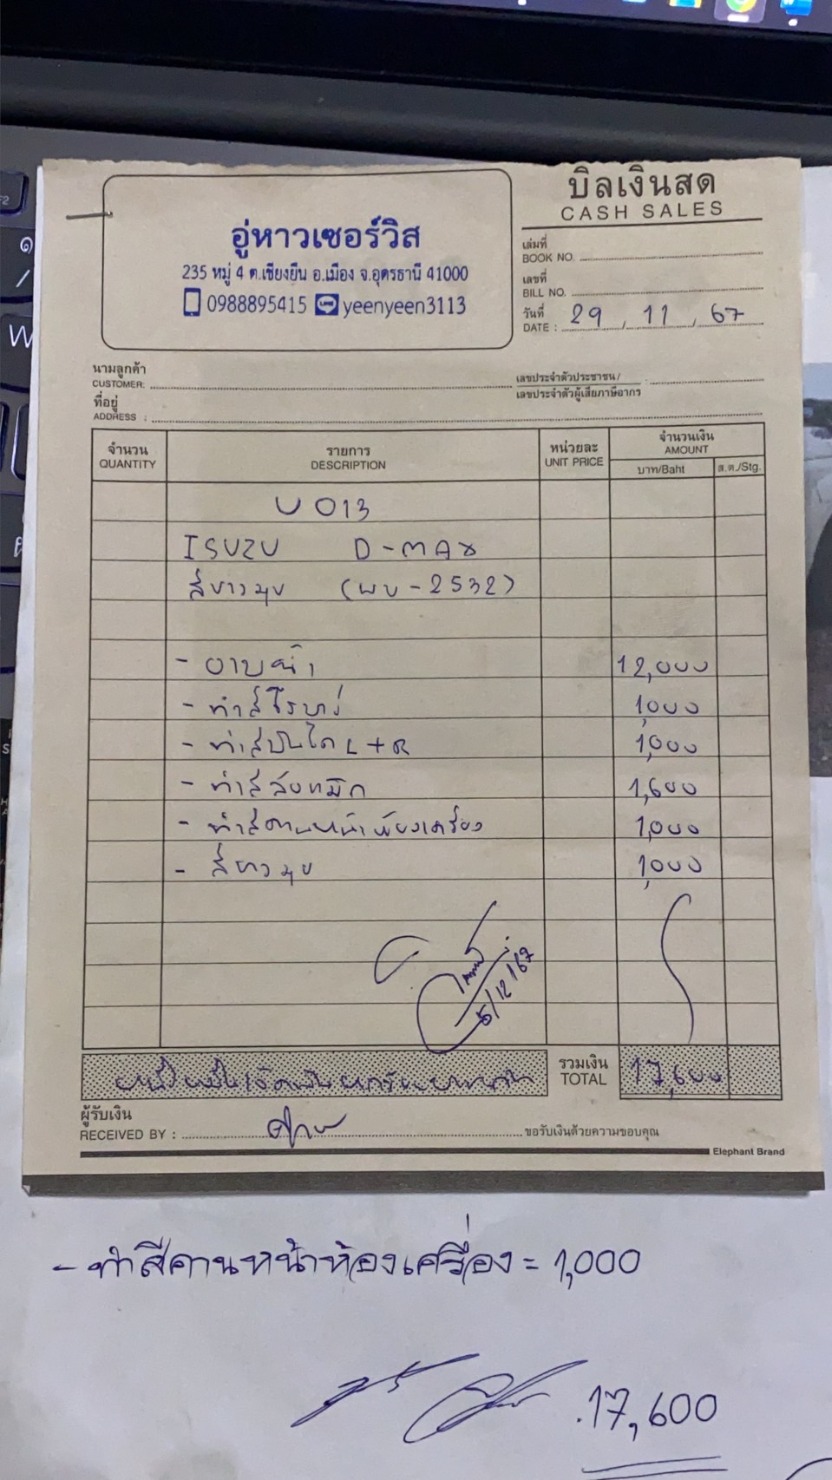 บิลเงินสด
CASH SALES
อู่หาวเซอร์วิส
235 หมู่ 4 ต.เชียงยืน อ.เมือง จ.อุดรธานี 41000
0988895415 yeenyeen3113
เล่มที่
BOOK NO.
เลขที่
BILL NO.
วันที่
DATE : 29 , 11 , 67
นามลูกค้า
CUSTOMER:
เลขประจำตัวประชาชน/
เลขประจำตัวผู้เสียภาษีอากร
ที่อยู่
ADDRESS :
จำนวน รายการ หน่วยละ จำนวนเงิน
QUANTITY DESCRIPTION UNIT PRICE AMOUNT
บาท/Baht ส.ต./Stg.
U 013
ISUZU D-MAX
สีขาวมุข (ผบ-2532)
- อาบน้ำ 12,000
- ทำสีโรบาร์ 1,000
- ทำสีบันได L+R 1,000
- ทำสี 1,600
- ทำสีคานหน้าห้องเครื่อง 1,000
- สีขาวมุข 1,000
5/12/67
รวมเงิน
TOTAL 17,600
ผู้รับเงิน
RECEIVED BY : ขอรับเงินด้วยความขอบคุณ
Elephant Brand
- ทำสีคานหน้าห้องเครื่อง = 1,000
17,600